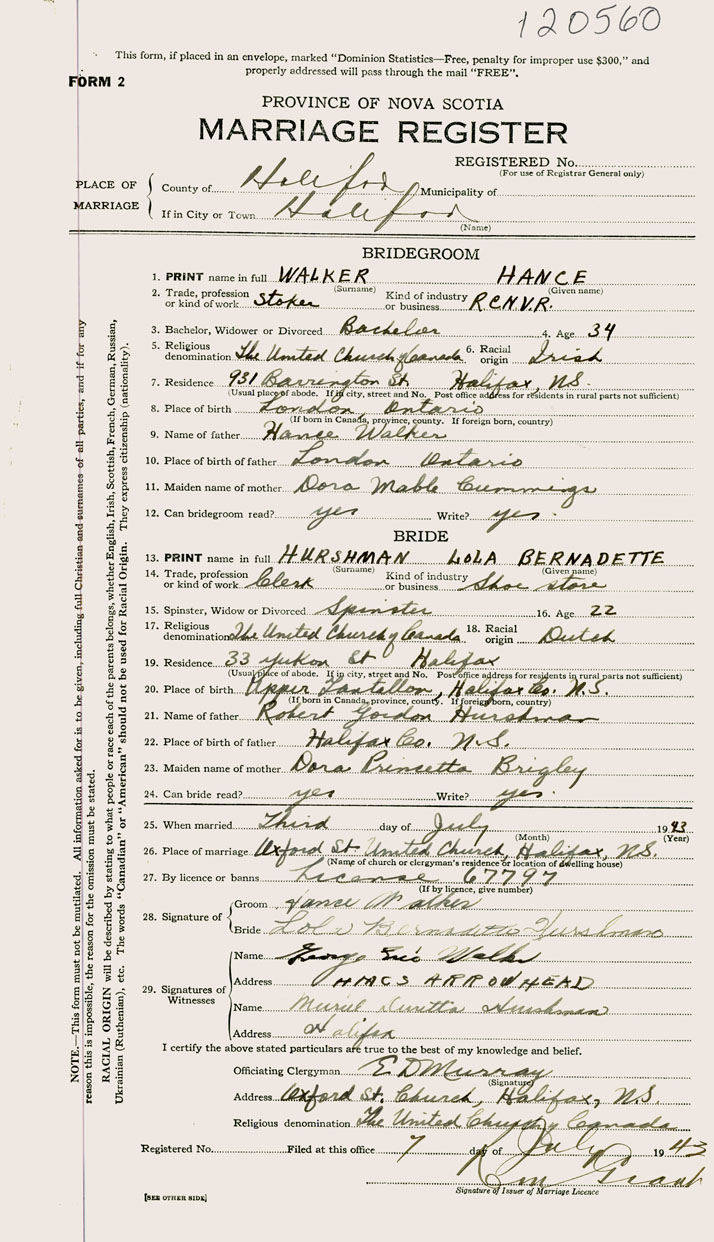 120560
This form, if placed in an envelope, marked “Dominion Statistics—Free, penalty for improper use $300,” and
properly addressed will pass through the mail “FREE”.
FORM 2
PROVINCE OF NOVA SCOTIA
MARRIAGE REGISTER
REGISTERED No.
(For use of Registrar General only)
PLACE OF MARRIAGE
County of Halifax Municipality of
If in City or Town Halifax
(Name)
BRIDEGROOM
1. PRINT name in full WALKER HANCE
(Surname) (Given name)
2. Trade, profession or kind of work Stoker Kind of industry or business R.C.N.V.R.
3. Bachelor, Widower or Divorced Bachelor 4. Age 34
5. Religious denomination The United Church of Canada 6. Racial origin Irish
7. Residence 931 Barrington St. Halifax, N.S.
(Usual place of abode. If in city, street and No. Post office address for residents in rural parts not sufficient)
8. Place of birth London, Ontario
(If born in Canada, province, county. If foreign born, country)
9. Name of father Hance Walker
10. Place of birth of father London Ontario
11. Maiden name of mother Dora Mable Cummings
12. Can bridegroom read? yes Write? yes.
BRIDE
13. PRINT name in full HURSHMAN LOLA BERNADETTE
(Surname) (Given name)
14. Trade, profession or kind of work Clerk Kind of industry or business Shoe store
15. Spinster, Widow or Divorced Spinster 16. Age 22
17. Religious denomination The United Church of Canada 18. Racial origin Dutch
19. Residence 33 Yukon St Halifax
(Usual place of abode. If in city, street and No. Post office address for residents in rural parts not sufficient)
20. Place of birth Upper Tantallon, Halifax Co. N.S.
(If born in Canada, province, county. If foreign born, country)
21. Name of father Robert Gordon Hurshman
22. Place of birth of father Halifax Co. N.S.
23. Maiden name of mother Dora Prinsetta Brigley
24. Can bride read? yes Write? yes.
25. When married Third day of July 1943
(Month) (Year)
26. Place of marriage Oxford St. United Church, Halifax, N.S.
(Name of church or clergyman's residence or location of dwelling house)
27. By licence or banns License 67797
(If by licence, give number)
28. Signature of
Groom Hance Walker
Bride Lola Bernadette Hurshman
29. Signatures of Witnesses
Name George Eric Walker
Address HMCS ARROWHEAD
Name Muriel Hurshman
Address Halifax
I certify the above stated particulars are true to the best of my knowledge and belief.
Officiating Clergyman E D Murray
(Signature)
Address Oxford St. Church, Halifax, N.S.
Religious denomination The United Church of Canada
Registered No. Filed at this office 7 day of July 1943
Grant
Signature of Issuer of Marriage Licence
[SEE OTHER SIDE]
NOTE.—This form must not be mutilated. All information asked for is to be given, including full Christian and surnames of all parties, and if for any
reason this is impossible, the reason for the omission must be stated.
RACIAL ORIGIN will be described by stating to what people or race each of the parents belongs, whether English, Irish, Scottish, French, German, Russian,
Ukrainian (Ruthenian), etc. The words “Canadian” or “American” should not be used for Racial Origin. They express citizenship (nationality).